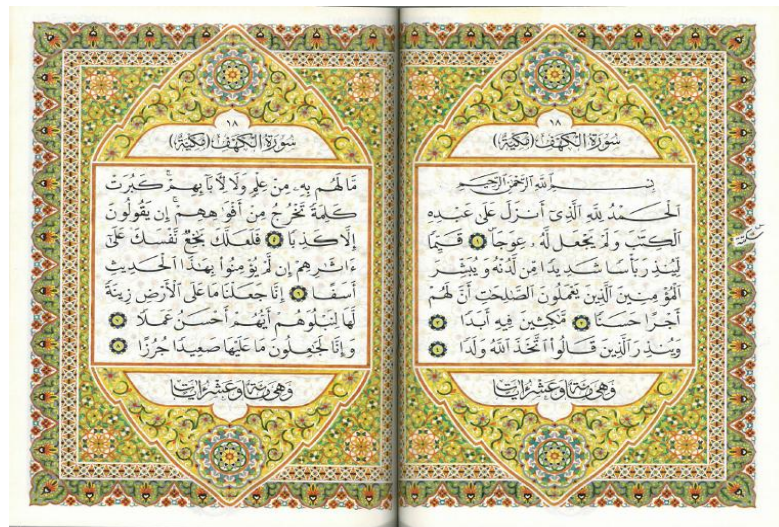 ١٨
سُورَةُ الْكَهْفِ (مَكِّيَّةٌ)
بِسْمِ اللَّهِ الرَّحْمَٰنِ الرَّحِيمِ
اَلْحَمْدُ لِلَّهِ الَّذِىٓ أَنزَلَ عَلَىٰ عَبْدِهِ
الْكِتَٰبَ وَلَمْ يَجْعَل لَّهُۥ عِوَجًا ١ قَيِّمًا
لِّيُنذِرَ بَأْسًا شَدِيدًا مِّن لَّدُنْهُ وَيُبَشِّرَ
الْمُؤْمِنِينَ الَّذِينَ يَعْمَلُونَ الصَّٰلِحَٰتِ أَنَّ لَهُمْ
أَجْرًا حَسَنًا ٢ مَّٰكِثِينَ فِيهِ أَبَدًا ٣
وَيُنذِرَ الَّذِينَ قَالُوا۟ اتَّخَذَ اللَّهُ وَلَدًا ٤
وَهِىَ مِئَةٌ وَعَشْرُ اٰيَاتٍ
سكتة
١٨
سُورَةُ الْكَهْفِ (مَكِّيَّةٌ)
مَّا لَهُم بِهِۦ مِنْ عِلْمٍ وَلَا لِءَابَآئِهِمْ ۚ كَبُرَتْ
كَلِمَةً تَخْرُجُ مِنْ أَفْوَٰهِهِمْ ۚ إِن يَقُولُونَ
إِلَّا كَذِبًا ٥ فَلَعَلَّكَ بَٰخِعٌ نَّفْسَكَ عَلَىٰٓ
ءَاثَٰرِهِمْ إِن لَّمْ يُؤْمِنُوا۟ بِهَٰذَا الْحَدِيثِ
أَسَفًا ٦ إِنَّا جَعَلْنَا مَا عَلَى الْأَرْضِ زِينَةً
لَّهَا لِنَبْلُوَهُمْ أَيُّهُمْ أَحْسَنُ عَمَلًا ٧
وَإِنَّا لَجَٰعِلُونَ مَا عَلَيْهَا صَعِيدًا جُرُزًا ٨
وَهِىَ مِئَةٌ وَعَشْرُ اٰيَاتٍ